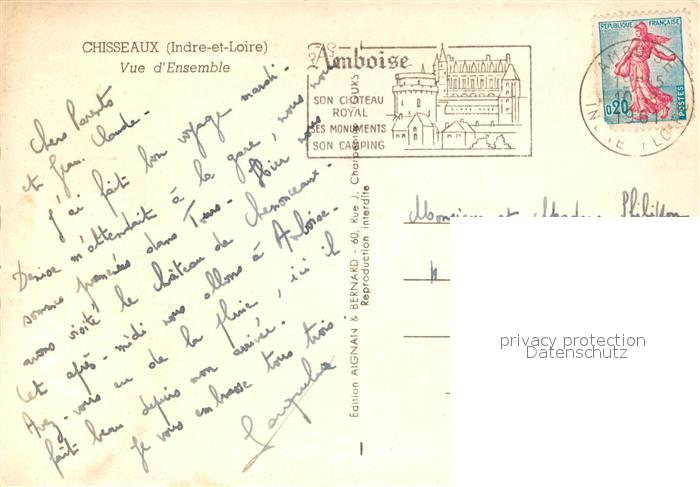 CHISSEAUX (Indre-et-Loire)
Vue d'Ensemble
Chers Parents
et Jean-Claude -
J'ai fait bon voyage mardi -
Denise m'attendait à la gare, nous nous
sommes promenées dans Tours - Hier nous
avons visité le château de Chenonceaux -
Cet après-midi nous allons à Amboise -
Avez-vous eu de la pluie, ici il
fait beau depuis mon arrivée.
Je vous embrasse tous trois
Amboise
SON CHATEAU
ROYAL
SES MONUMENTS
SON CAMPING
REPUBLIQUE FRANÇAISE
0,20
POSTES
Edition AIGNAN & BERNARD - 60, Rue J. Charpentier TOURS
Reproduction interdite
Monsieur et Madame
privacy protection
Datenschutz